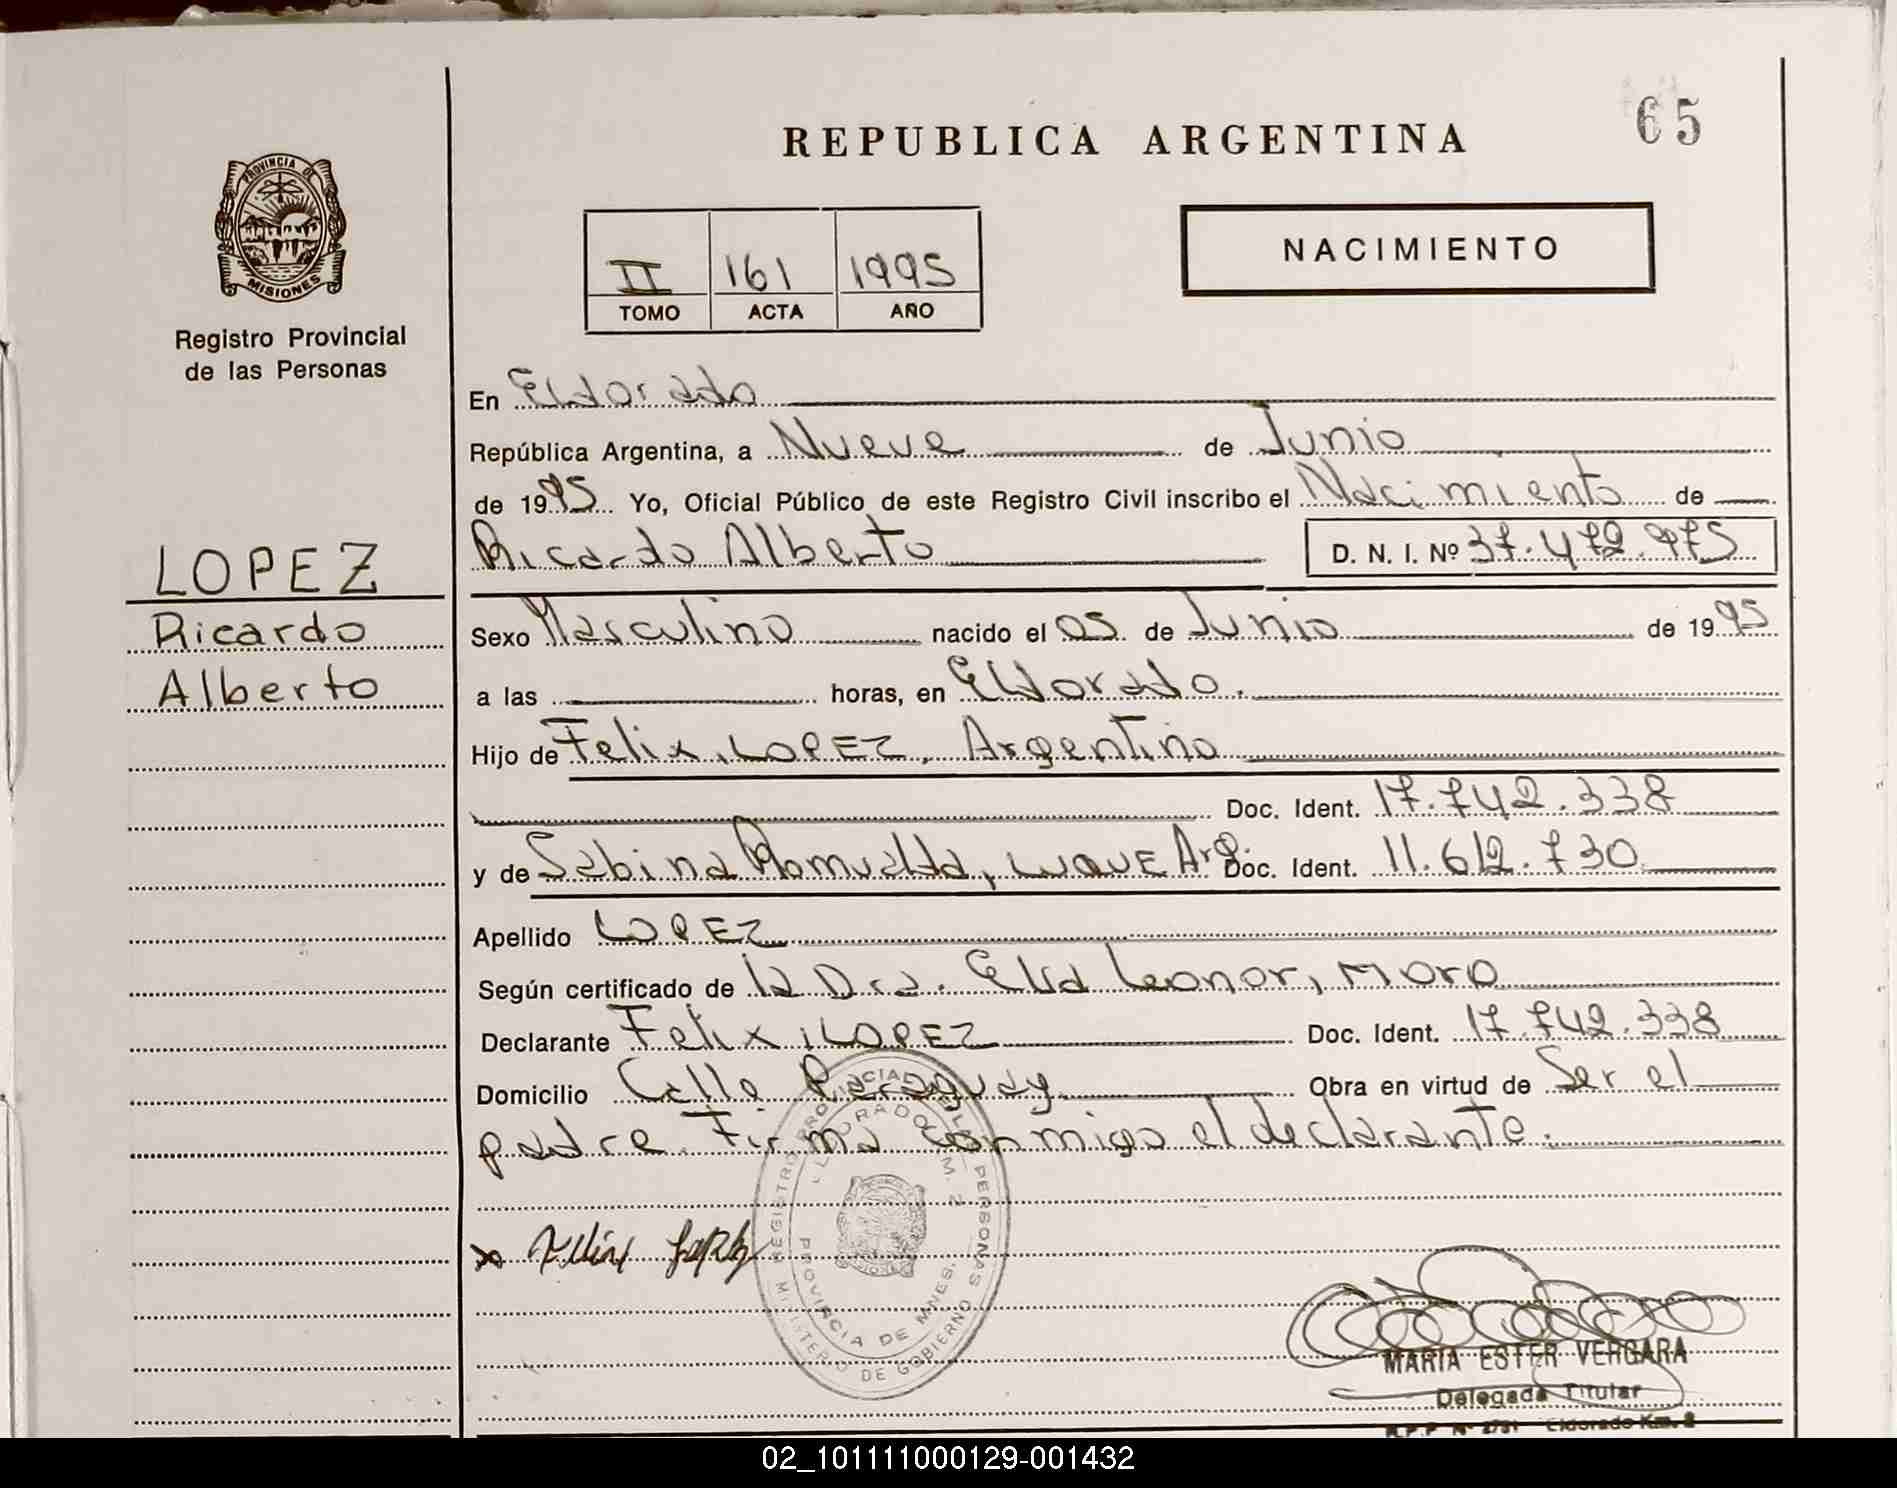 65
REPUBLICA ARGENTINA
PROVINCIA DE
MISIONES
Registro Provincial
de las Personas
NACIMIENTO
II 161 1995
TOMO ACTA AÑO
En Eldorado
República Argentina, a Nueve de Junio
de 1995 Yo, Oficial Público de este Registro Civil inscribo el Nacimiento de
Ricardo Alberto D. N. I. Nº 37.472.975
LOPEZ
Ricardo
Alberto
Sexo Masculino nacido el 05 de Junio de 1995
a las horas, en Eldorado.
Hijo de Felix, LOPEZ, Argentino
Doc. Ident. 17.742.338
y de Sabina Romualda, LUQUE Arg. Doc. Ident. 11.612.730
Apellido LOPEZ
Según certificado de la Dra. Elsa Leonor, MORO
Declarante Felix, LOPEZ Doc. Ident. 17.742.338
Domicilio Calle Paraguay Obra en virtud de Ser el
padre. Firma conmigo el declarante.
x Felix Lopez
REGISTRO PROVINCIAL DE LAS PERSONAS
MINISTERIO DE GOBIERNO
ELDORADO KM. 2
PROVINCIA DE MNES.
MARIA ESTER VERGARA
Delegada Titular
R.P.P. Nº 2731 Eldorado Km. 2
02_101111000129-001432